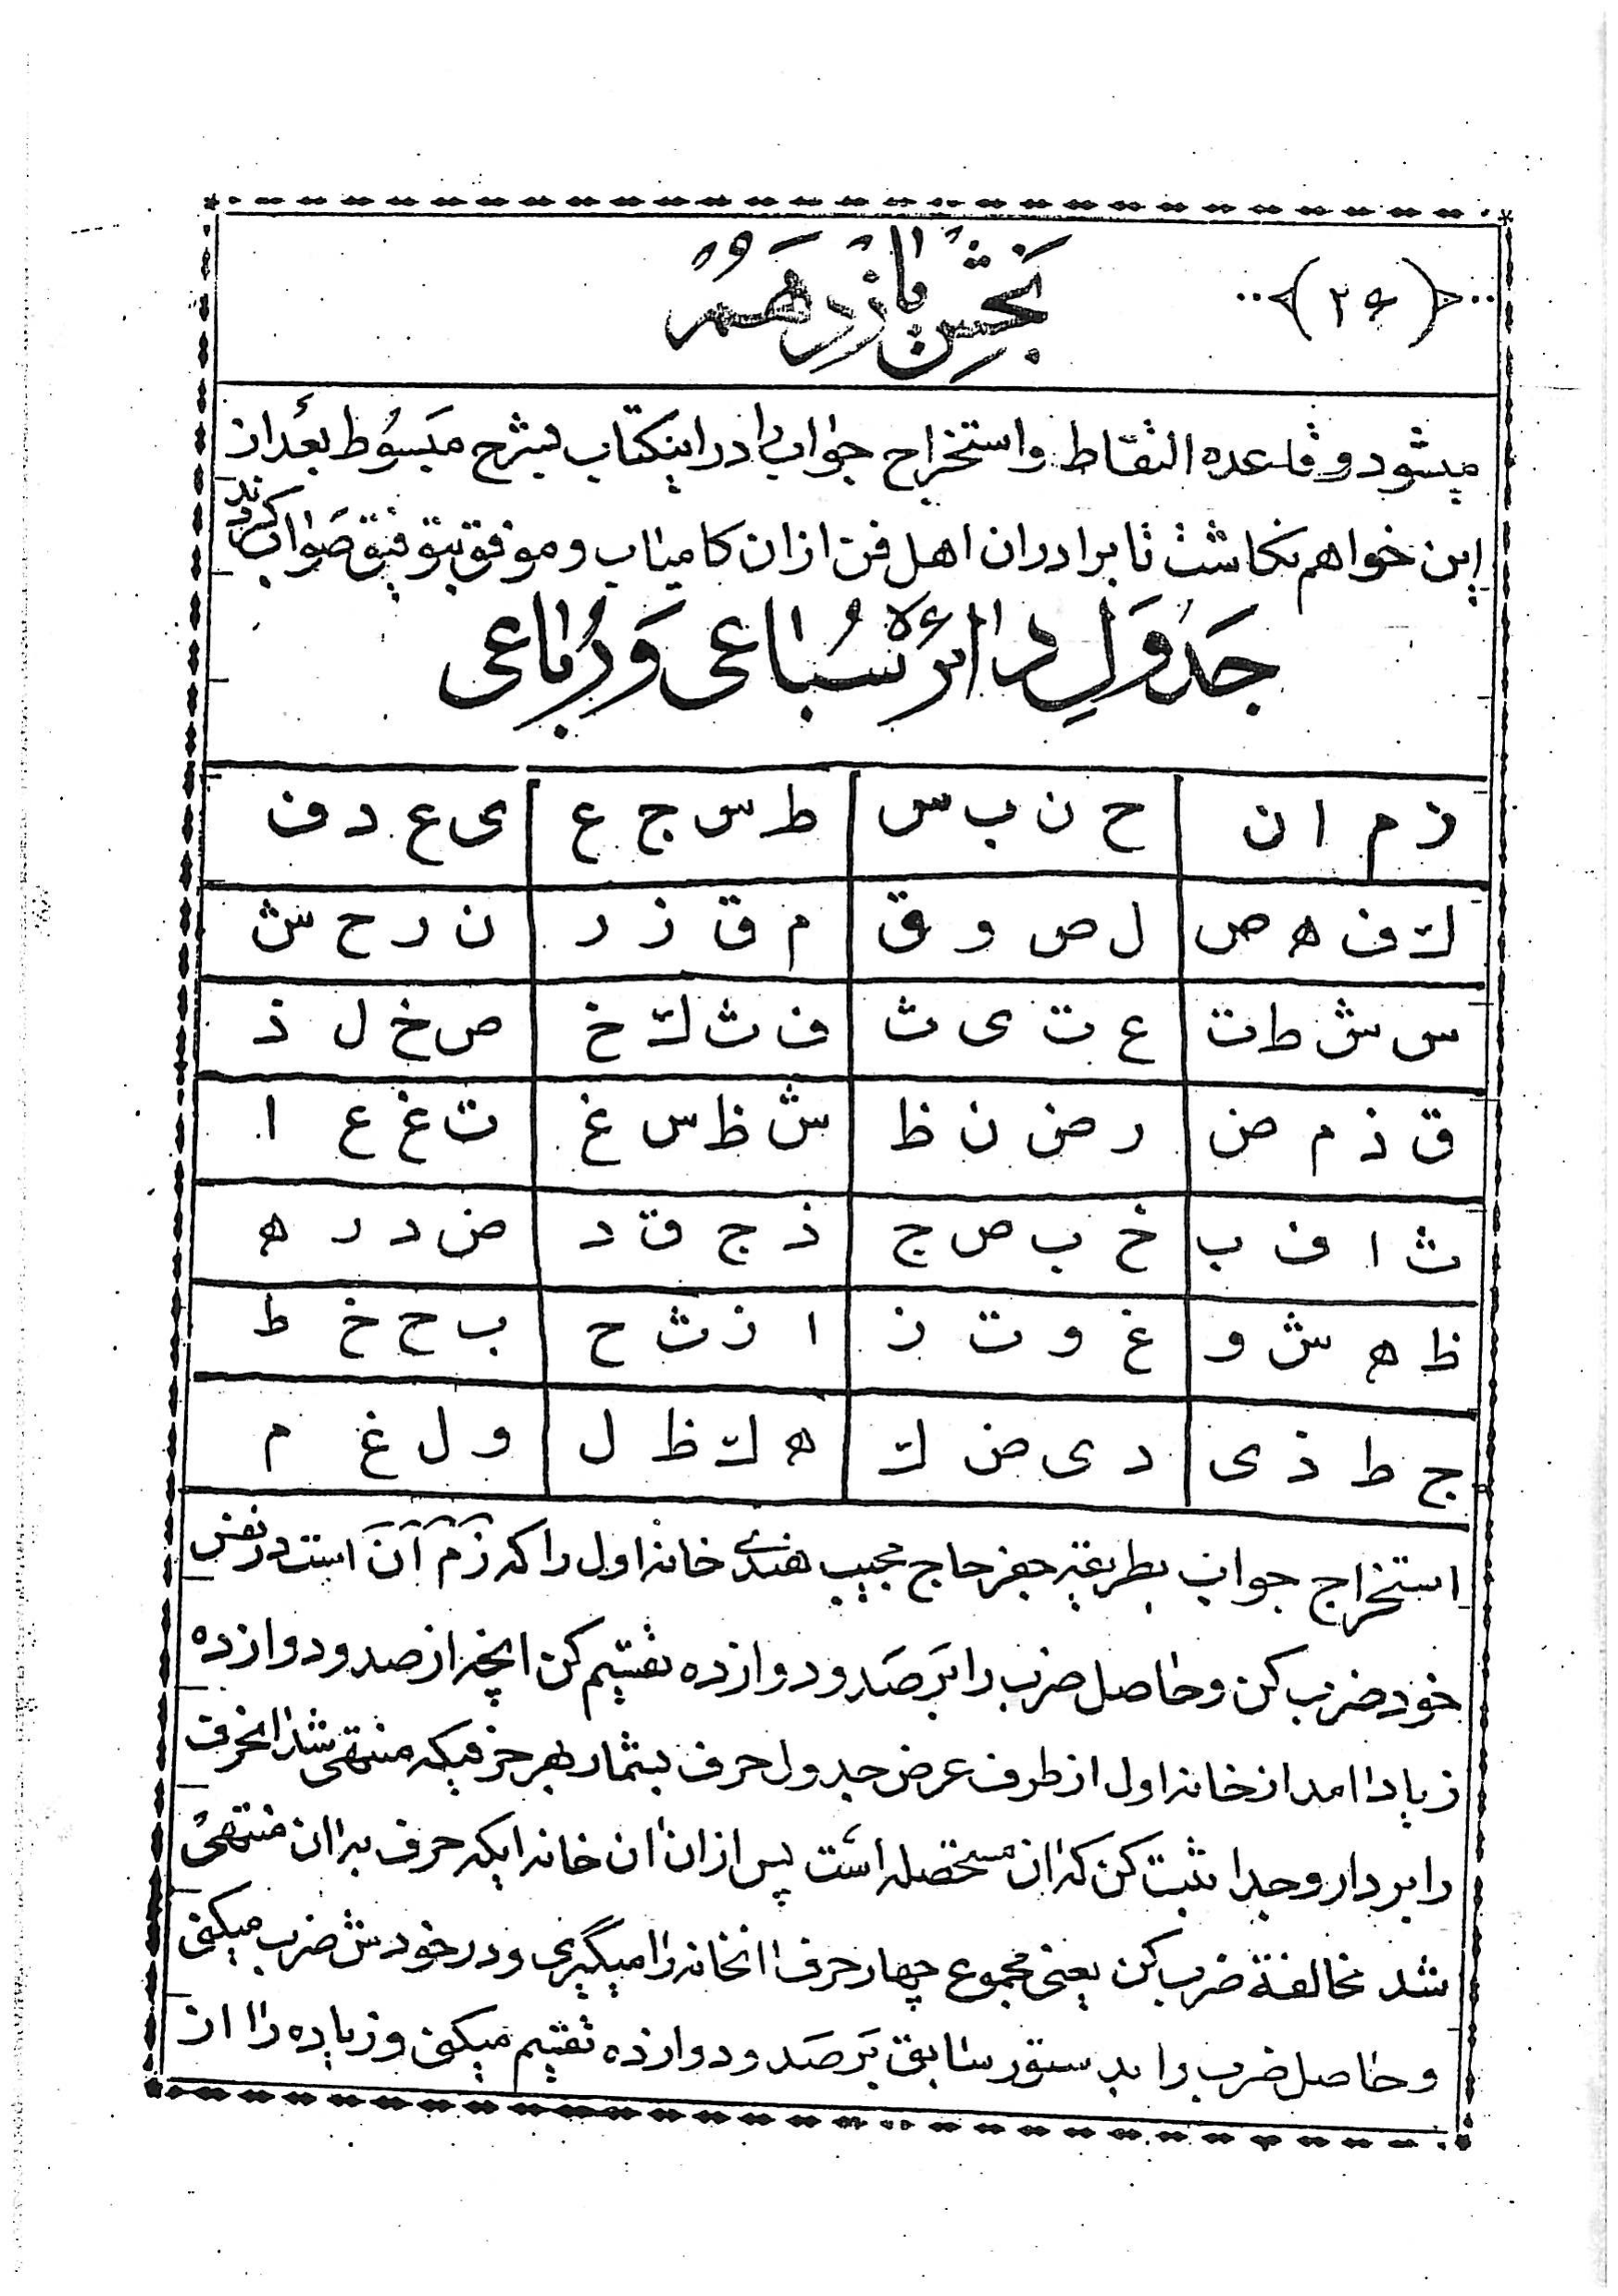 ﴿۲۶﴾
بخش یازدهم
میشود و قاعده التقاط و استخراج جواب را در اینکتاب بشرح مبسوط بعد از
این خواهم نگاشت تا برادران اهل فن از ان کامیاب و موفق بتوفیق صواب گردند
جدول دائره سباعی و رباعی
ز م ا ن | ح ن ب س | ط س ج ع | ی ع د ف
ک ف ه ص | ل ص و ق | م ق ز ر | ن ر ح ش
س ش ط ت | ع ت ی ث | ف ث ک خ | ص خ ل ذ
ق ذ م ض | ر ض ن ظ | ش ظ س غ | ت غ ع ا
ث ا ف ب | خ ب ص ج | ذ ج ق د | ض د ر ه
ظ ه ش و | غ و ت ز | ا ز ث ح | ب ح خ ط
ج ط ذ ی | د ی ض ک | ه ک ظ ل | و ل غ م
استخراج جواب بطریقه جفر حاج مجیب هندی خانه اول را که زم آن است در نفس
خود ضرب کن و حاصل ضرب را بر صد و دوازده تقسیم کن انچه از صد و دوازده
زیاد امد از خانه اول از طرف عرض جدول حرف بشمار بهر حرفیکه منتهی شد انحرف
را بردار و جدا ثبت کن که ان مستحصله است پس از ان ان خانه ایکه حرف به ان منتهی
شد مخالفة ضرب کن یعنی مجموع چهار حرف انخانه را میگیری و در خودش ضرب میکنی
و حاصل ضرب را بدستور سابق بر صد و دوازده تقسیم میکنی و زیاده را از